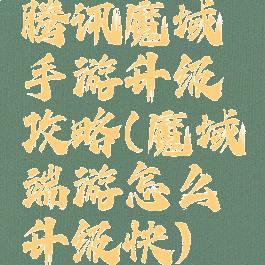 腾讯魔域
手游升级
攻略(魔域
端游怎么
升级快)